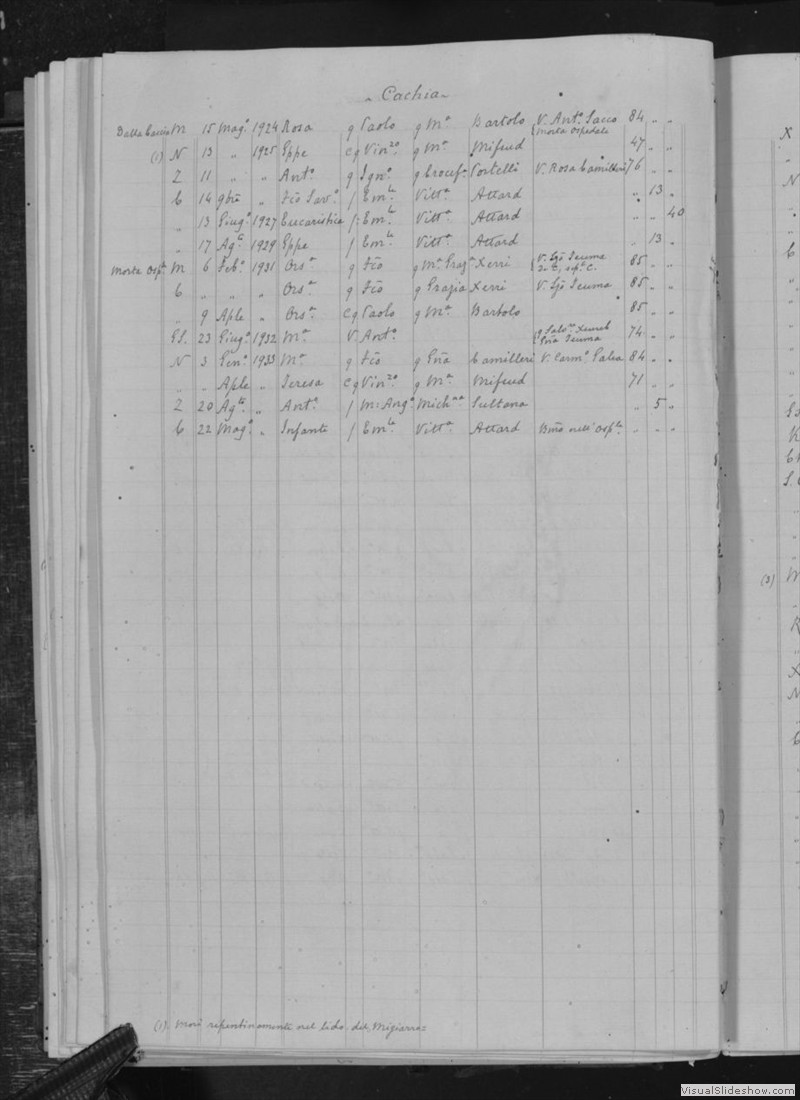 Cachia
Dalla Caccia M 15 Mag.º 1924 Rosa g Paolo g M.ª Bartolo V. Ant.º Sacco 84 " "
Morta Ospedale
(1) N 13 " 1925 Eppe cg Vin.zo g M.ª Mifsud 47 " "
Z 11 " " Ant.º g Ign.º g Crocef.ª Portelli V. Rosa Camilleri 76 " "
C 14 9bre " Fco Sav.º f Em.le Vitt.ª Attard " 13 "
" 13 Giug.º 1927 Eucaristica f: Em.le Vitt.ª Attard " " 40
" 17 Ag.to 1929 Eppe f Em.le Vitt.ª Attard " 13 "
Morta Osp.e M 6 Feb.º 1931 Ors.ª g Fco g M.ª Graz.ª Xerri V. Gio Seuma 85 " "
C " " " Ors.ª g Fco g Grazia Xerri V. Gio Seuma 85 " "
" 9 Aple " Ors.ª cg Paolo g M.ª Bartolo 85 " "
23 Giug.º 1932 M.ª V Ant.º g Salv.e Xuereb 74 " "
Gna Seuma
N 3 Gen.º 1933 M.ª g Fco g Gna Camilleri V. Carm.º Galea 84 " "
" " Aple " Teresa cg Vin.zo g M.ª Mifsud 71 " "
Z 20 Ag.to " Ant.º f M: Ang.º Mich.na Sultana " 5 "
C 22 Mag.º " Infante f Em.le Vitt.ª Attard nell' Osp.le " " "
(1). Morì repentinamente nel lido del Migiarro=
X
N
C
K
(3) M
K
X
N
C
VisualSlideshow.com